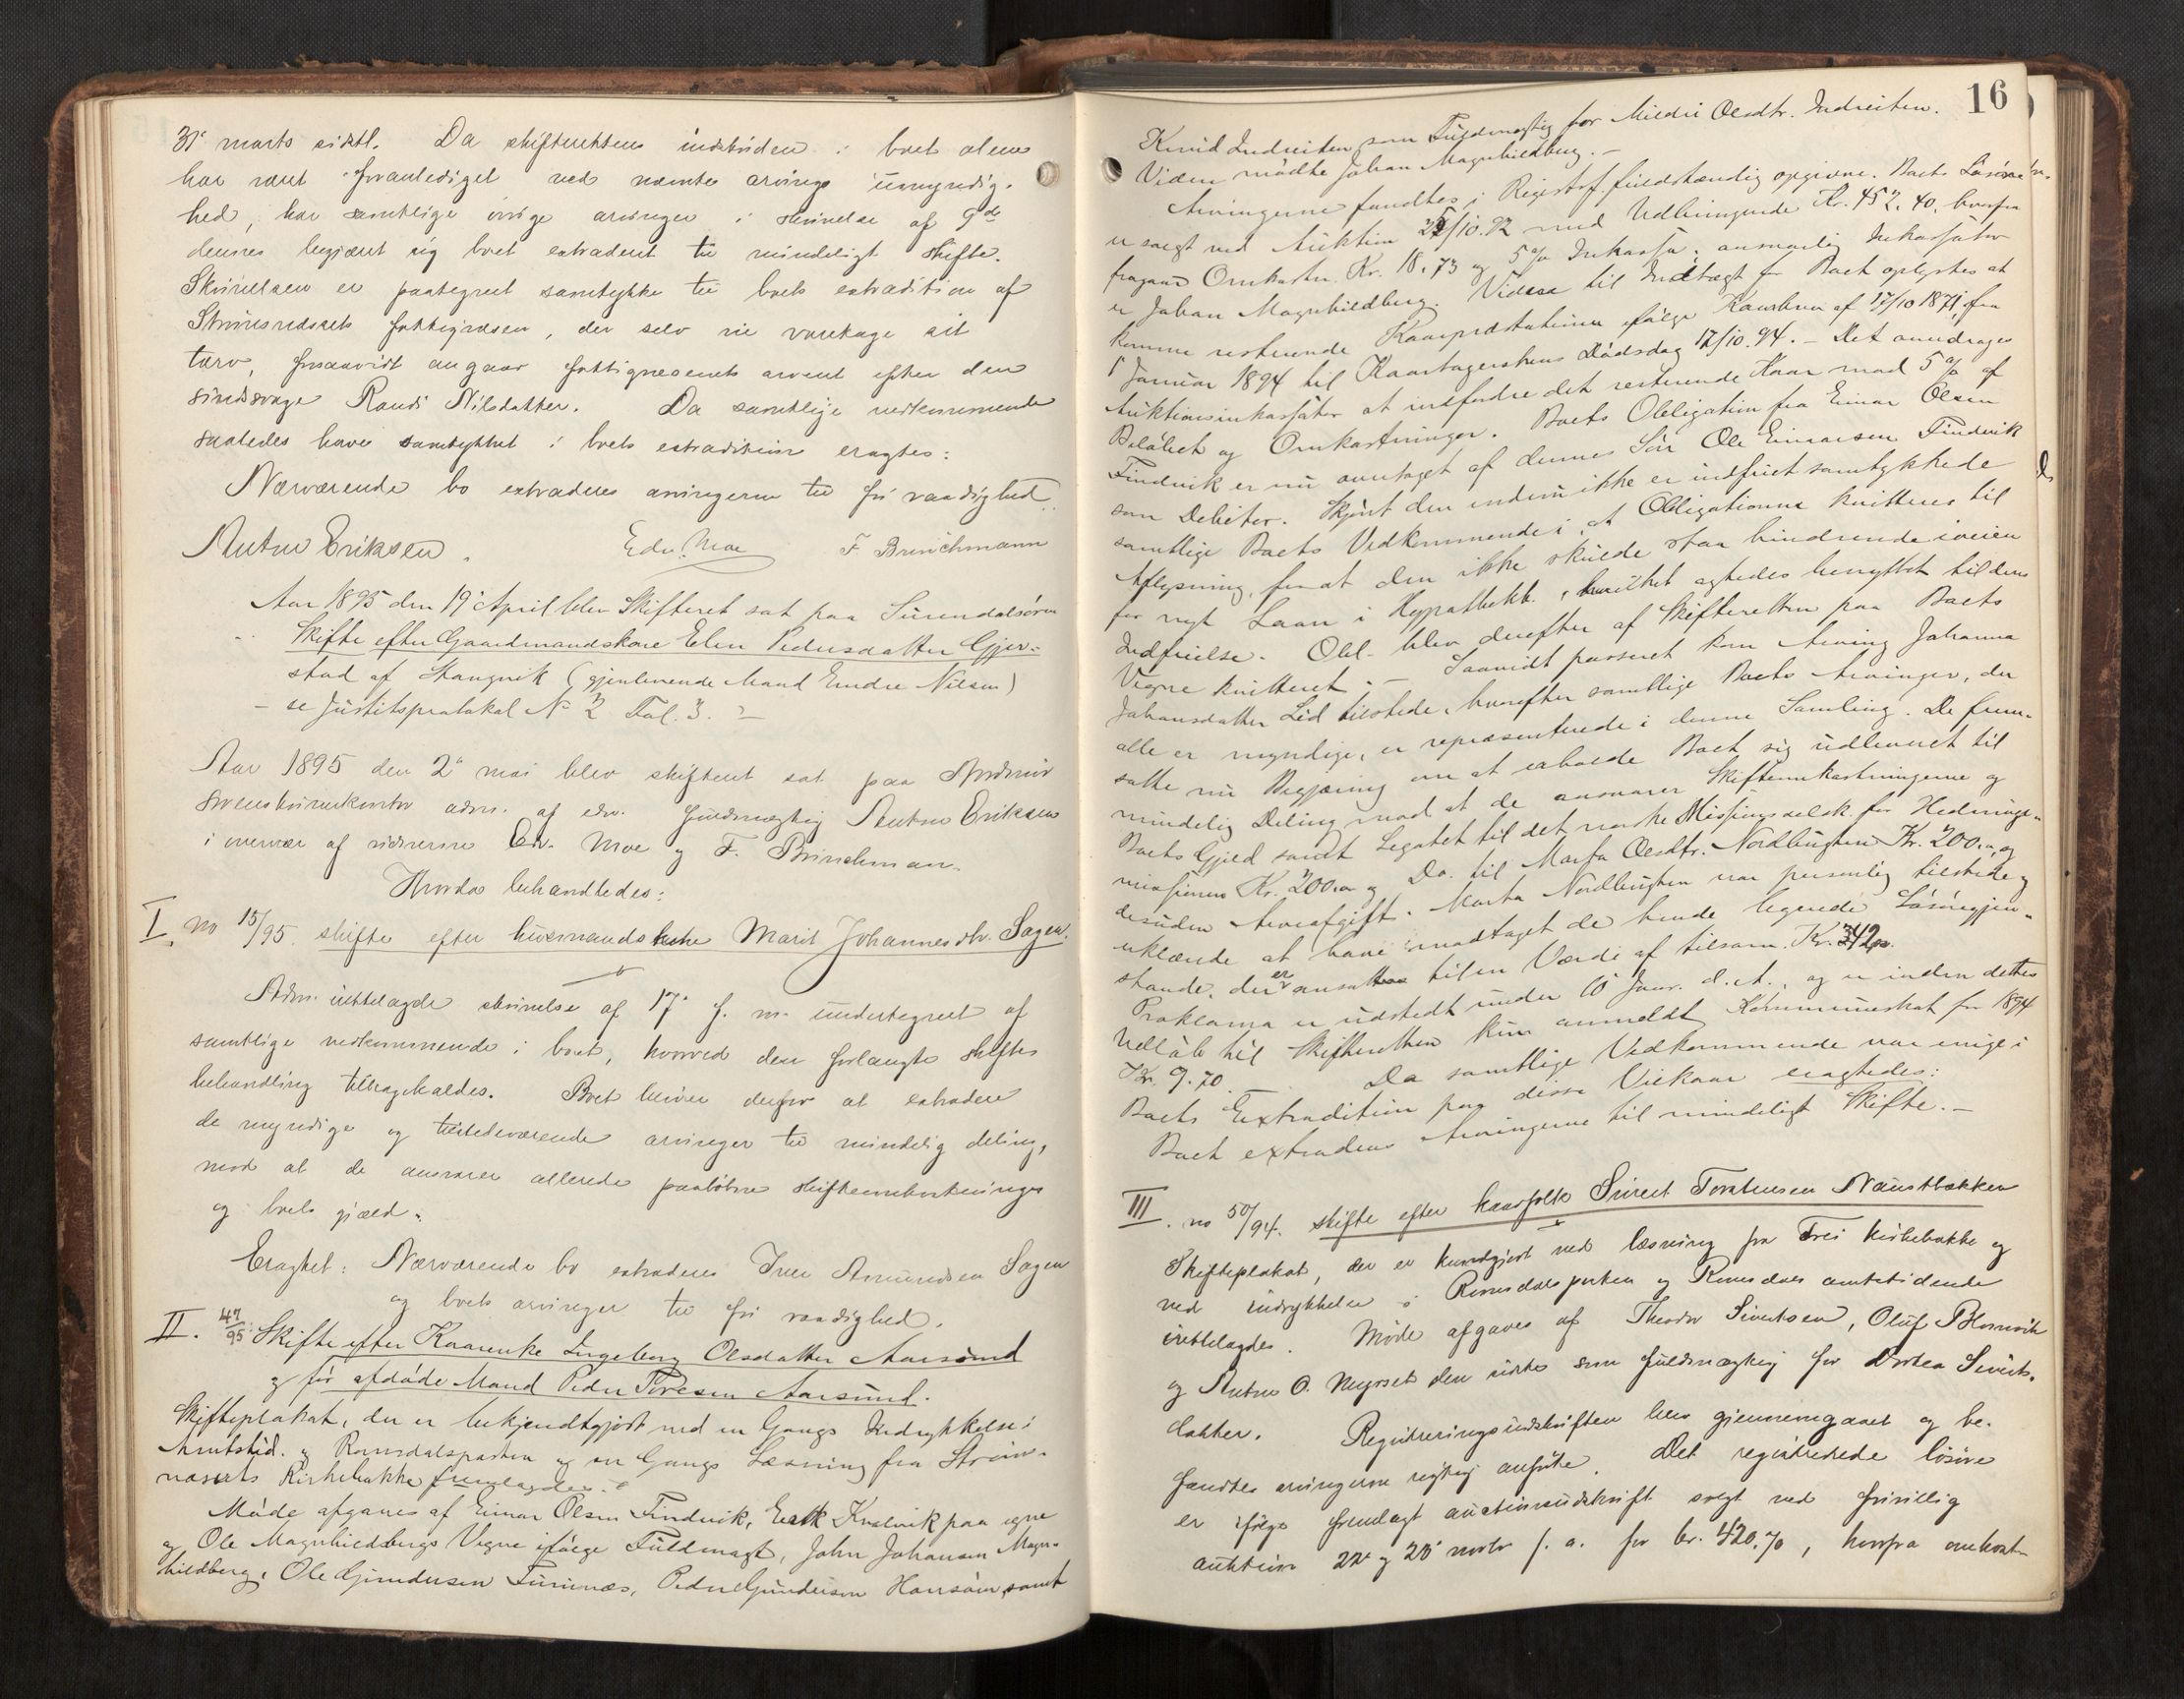 31' marts sidstl. Da skifterettens indskriden i boet alene
har været foranlediget ved nævnte arvings umyndig-
hed, har samtlige øvrige arvinger i skrivelse af 9de
dennes begjæret sig boet extraderet til mindeligt skifte.
Skrivelsen er paategnet samtykke til boets extradition af
Strømsnessets fattigvæsen, der selv vil varetage sit
tarv, forsaavidt angaar fattigvæsenets arveret efter den
sindssvage Randi Nilsdatter. Da samtlige vedkommende
saaledes have samtykket i boets extradition eragtes:
Nærværende bo extraderes arvingerne til fri raadighed.
Anton Eriksen. Edv. Moe F. Brinchmann
Aar 1895 den 19' April blev Skifteret sat paa Surendalsøren
Skifte efter Gaardmandskone Elen Pedersdatter Gjer-
stad af Stangvik (gjenlevende Mand Endre Nilsen)
- se Justitsprotokol No 2 Fol. 3. -
Aar 1895 den 2' mai blev skifteret sat paa Nordmør
sorenskriverkontor adm. af edsv. fuldmægtig Anton Eriksen
i overvær af vidnerne Edv. Moe og F. Brinchmann.
Hvorda behandledes:
I. No 15/95. skifte efter husmandskone Marit Johannesdtr. Sagen.
Adm. fremlagde skrivelse af 17' f. m. undertegnet af
samtlige vedkommende i boet, hvorved den forlangte skifte-
behandling tilbagekaldes. Boet bliver derfor at extradere
de myndige og tilstedeværende arvinger til mindelig deling,
mod at de ansvarer allerede paaløbne skifteomkostninger
og boets gjæld.
Eragtet: Nærværende bo extraderes Iver Amundsen Sagen
og boets arvinger til fri raadighed.
II. 47/95: Skifte efter Kaarenke Ingeborg Olsdatter Aarsund
og før afdøde Mand Peder Toresen Aarsund.
Skifteplakat, der er bekjendtgjort ved en Gangs Indrykkelse i
Amtstid. og Romsdalsposten og en Gangs Læsning fra Strøm-
næssets Kirkebakke fremlagdes.
Møde afgaves af Einar Olsen Findvik, Erik Kvalvik paa egne
og Ole Magnhildbergs Vegne ifølge Fuldmagt, John Johansen Magn-
hildberg, Ole Gundersen Furunæs, Peder Gundersen Honsøien, samt
16
Knud Indreiten som Fuldmægtig for Mildri Olsdtr. Indreiten.
Viden mødte Johan Magnhildberg. -
Arvingerne fandtes i Registrf. fuldstændig opgivne. Boets Løsøre
er solgt ved Auktion 25/10.92 med Udbringende Kr. 452.40, hvorfra
fragaar Omkostn. Kr. 18.73 og 5% Inkasso; ansvarlig Inkassator
er Johan Magnhildberg. Videre til Indtægt for Boet oplystes at
komme resterende Kaarpræstationer ifølge Kaarbrev af 17/10 1871, fra
1' Januar 1894 til Kaartagerskens Dødsdag 12/10.94. - Det overdrages
Auktionsinkassator at indfordre det resterende Kaar mod 5% af
Beløbet og Omkostninger. Boets Obligation fra Einar Olsen
Findvik er nu overtaget af dennes Søn Ole Einarsen Findvik
som Debitor. Skjønt den endnu ikke er indfriet samtykkede
samtlige Boets Vedkommende i, at Obligationen kvitteres til
Aflysning, for at den ikke skulde staa hindrende iveien
for nyt Laan i Hypothekb., hvilket agtedes benyttet til dens
Indfrielse. Obl. blev derefter af Skifteretten paa Boets
Vegne kvitteret. - Saavidt passeret kom Arving Johanna
Johansdatter Lid tilstede, hvorefter samtlige Boets Arvinger, der
alle er myndige, er repræsenterede i denne Samling. De frem-
satte nu Begjæring om at erholde Boet sig udleveret til
mindelig Deling mod at de ansvarer Skifteomkostningerne og
Boets Gjæld samt Legatet til det norske Missionsselsk. for Hedninge-
missionen Kr. 200.00 og Do. til Marta Olsdtr. Nordbugten Kr. 200.00, og
desuden Arveafgift. Marta Nordbugten var personlig tilstede og
erklærede at have modtaget de hende legerede Løsøregjen-
stande, der er ansatte til en Værdi af tilsam. Kr. 342.00.
Proklama er udstedt under 10' Janr. d. A., og er inden dettes
Udløb til Skifteretten kun anmeldt Kommuneskat for 1894
Kr. 9.70. Da samtlige Vedkommende var enige i
Boets Extradition paa disse Vilkaar eragtedes:
Boet extraderes Arvingerne til mindeligt Skifte. -
III. no 50/94. skifte efter kaarfolk Sivert Torstensen Naustbakken
Skifteplakat, der er kundgjort ved læsning fra Frei kirkebakke og
ved indrykkelse i Romsdalsposten og Romsdals amtstidende
fremlagdes. Møde afgaves af Theodor Sivertsen, Oluf Blomvik
og Anton O. Nygset den sidste som fuldmægtig for Dortea Siverts-
datter. Registreringsudskriften blev gjennemgaaet og be-
fandtes arvingerne rigtig anførte. Det registrerede løsøre
er ifølge fremlagt auctionsudskrift solgt ved frivillig
auktion 22' og 23' novbr f. a. for kr. 420.70, hvorfra omkost-